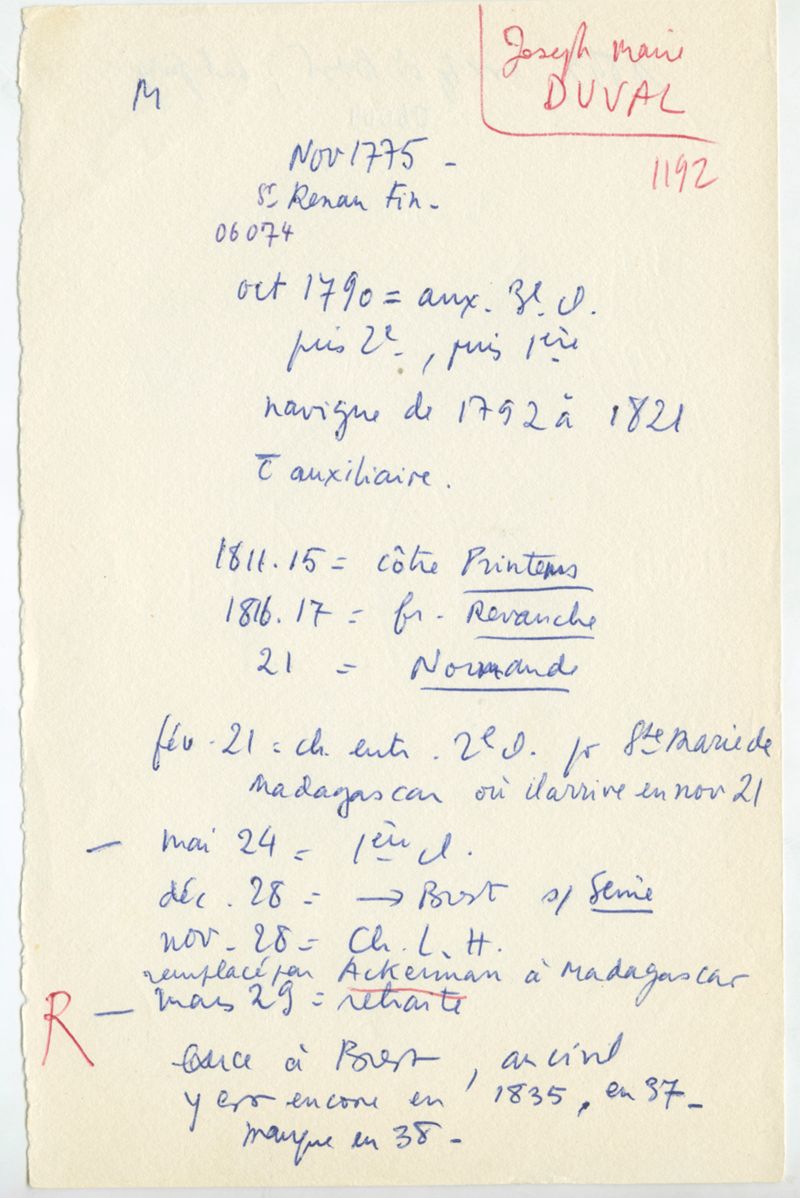 Joseph Marie
DUVAL
M
1192
Nov 1775 -
St Renan Fin.
06074
oct 1790 = aux. 3e cl.
puis 2e, puis 1ère
navigue de 1792 à 1821
c̄ auxiliaire.
1811.15 = côtre Printems
1816.17 = fr. Revanche
21 = Normande
fév. 21 = ch. entr. 2e cl. pr Ste Marie de
Madagascar où il arrive en nov 21
- mai 24 = 1ère cl.
déc. 28 = → Brest s/ Seine
nov. 28 = Ch. L. H.
remplacé par Ackerman à Madagascar
R - mars 29 = retraite
à Brest, au civil
y est encore en 1835, en 37-
manque en 38-